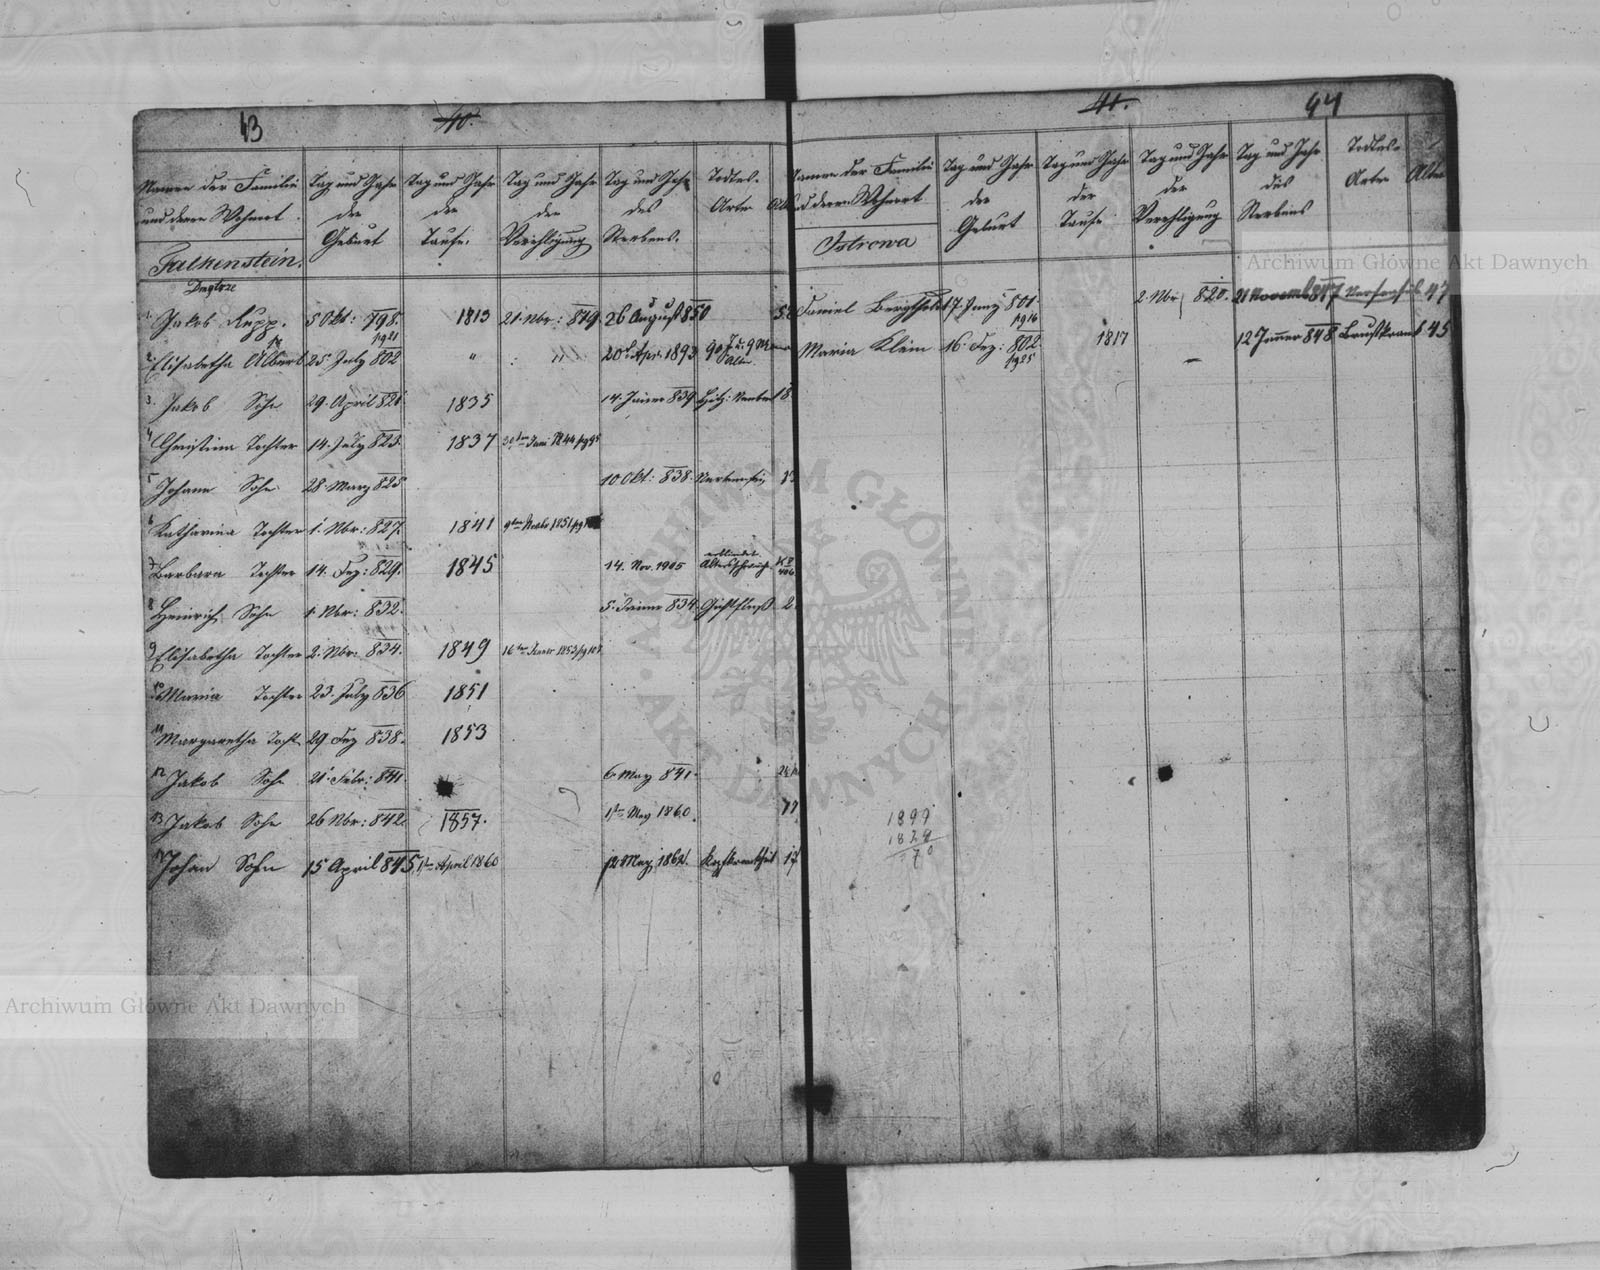 43
40.
Namen der Familie
und deren Wohnort.
Tag und Jahr
der
Geburt
Tag und Jahr
der
Taufe.
Tag und Jahr
der
Verehligung
Tag und Jahr
des
Sterbens.
Todtes-
Arten
Falkenstein.
1. Jakob Rupp. 5 Okt: 798. 1813 21. Nbr: 819 26 August 850
pg 21
2. Elisabetha Albert 25. July 802 " 20t Apr. 1893 90 J. u. 9 Monat
Alter
3. Jakob Sohn 29. April 821 1835 14. Jäner 839 18
4. Christina Tochter 14. July 823. 1837 30ten Juni 1844 pg 95
5. Johann Sohn 28. Marz 825 10 Okt: 838.
6 Katharina Tochter 1. Nbr: 827. 1841
7 Barbara Tochter 14. Dez: 829. 1845 14. Nov. 1905 erblindet
Altersschwäche
8 Heinrich Sohn 1. Nbr: 832. 5. Jäner 834 2
9 Elisabetha Tochter 2. Nbr: 834. 1849 16ten Jäner 1853
10 Maria Tochter 23. July 836 1851
11 Margaretha Tocht. 29 Dez 838. 1853
12 Jakob Sohn 21 Febr: 841. 6 May 841.
13 Jakob Sohn 26 Nbr: 842. 1857. 1ten May 1860. 17
14 Johan Sohn 15 April 845 1ten April 1860 12 May 1862. 17
41.
44
Namen der Familie
und deren Wohnort
Tag und Jahr
der
Geburt
Tag und Jahr
der
Taufe
Tag und Jahr
der
Verehligung
Tag und Jahr
des
Sterbens
Todtes-
Arten
Alter
Ostrowa
Daniel Bergthold 7. Juny 801. 2. Nbr 820. 21 Novemb 847 47
pg 16
Maria Klein 16. Dez: 802. 1817 12 Jenner 848 Brustkrank 45
pg 25
1899
1829
70
Archiwum Główne Akt Dawnych
Archiwum Główne Akt Dawnych
ARCHIWUM GŁÓWNE
AKT DAWNYCH